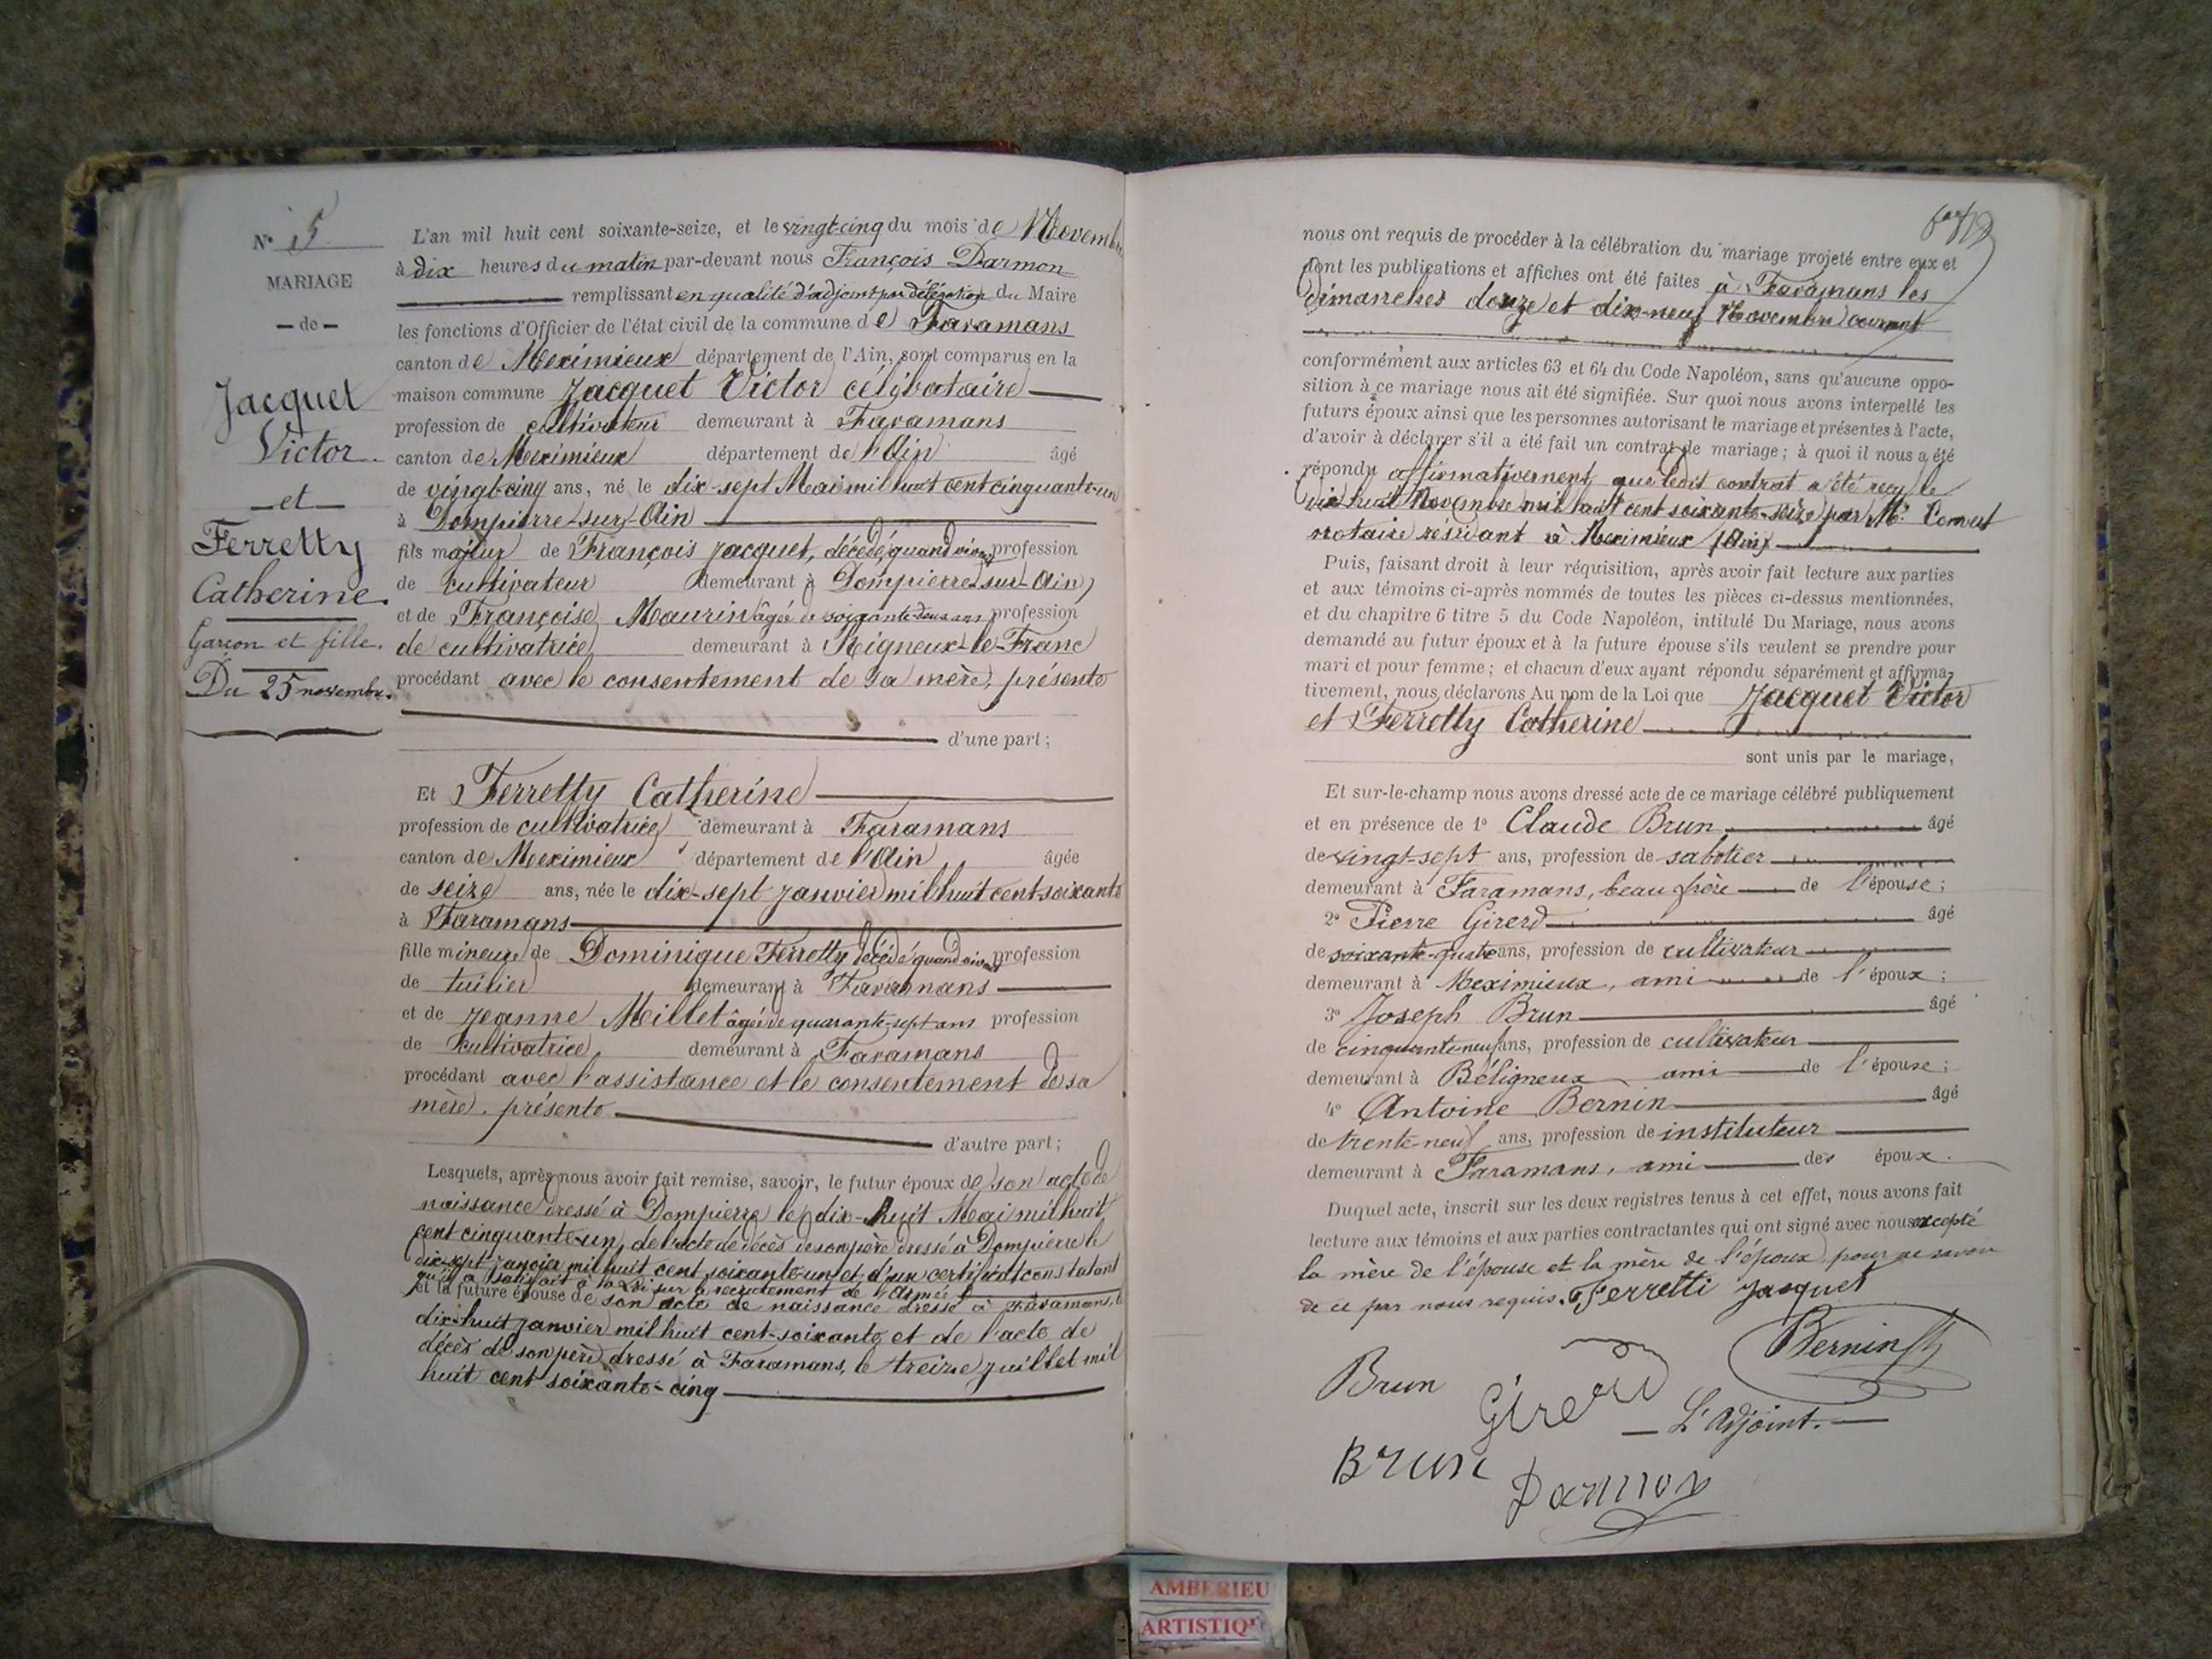 N° 5
MARIAGE
— de —
Jacquet
Victor
— et —
Ferretty
Catherine.
Garçon et fille.
Du 25 novembre.
L'an mil huit cent soixante-seize, et le vingt-cinq du mois de Novembre
à dix heures du matin par-devant nous François Darmon
remplissant en qualité d'adjoint par délégation du Maire
les fonctions d'Officier de l'état civil de la commune de Faramans
canton de Meximieux département de l'Ain, sont comparus en la
maison commune Jacquet Victor célibataire
profession de cultivateur demeurant à Faramans
canton de Meximieux département de l'Ain âgé
de vingt-cinq ans, né le dix-sept Mai mil huit cent cinquante-un
à Dompierre-sur-Ain
fils majeur de François Jacquet, décédé, quand vivait profession
de cultivateur demeurant à Dompierre-sur-Ain
et de Françoise Maurin âgée de soixante-deux ans profession
de cultivatrice demeurant à Rigneux-le-Franc
procédant avec le consentement de sa mère, présente
d'une part ;
Et Ferretty Catherine
profession de cultivatrice demeurant à Faramans
canton de Meximieux département de l'Ain âgée
de seize ans, née le dix-sept janvier mil huit cent soixante
à Faramans
fille mineure de Dominique Ferretty décédé quand vivait profession
de tuilier demeurant à Faramans
et de Jeanne Millet âgée de quarante-sept ans profession
de cultivatrice demeurant à Faramans
procédant avec l'assistance et le consentement de sa
mère, présente
d'autre part ;
Lesquels, après nous avoir fait remise, savoir, le futur époux de son acte de
naissance dressé à Dompierre le dix-huit Mai mil huit
cent cinquante-un, de l'acte de décès de son père dressé à Dompierre le
dix-sept janvier mil huit cent soixante-un et d'un certificat constatant
qu'il a satisfait à la Loi sur le recrutement de l'Armée
et la future épouse de son acte de naissance dressé à Faramans, le
dix-huit janvier mil huit cent-soixante et de l'acte de
décès de son père dressé à Faramans, le treize juillet mil
huit cent soixante-cinq
nous ont requis de procéder à la célébration du mariage projeté entre eux et
dont les publications et affiches ont été faites à Faramans les
dimanches douze et dix-neuf Novembre courant
conformément aux articles 63 et 64 du Code Napoléon, sans qu'aucune oppo-
sition à ce mariage nous ait été signifiée. Sur quoi nous avons interpellé les
futurs époux ainsi que les personnes autorisant le mariage et présentes à l'acte,
d'avoir à déclarer s'il a été fait un contrat de mariage ; à quoi il nous a été
répondu affirmativement, que ledit contrat a été reçu le
dix huit Novembre mil huit cent soixante-seize par Me
notaire résidant à Meximieux (Ain)
Puis, faisant droit à leur réquisition, après avoir fait lecture aux parties
et aux témoins ci-après nommés de toutes les pièces ci-dessus mentionnées,
et du chapitre 6 titre 5 du Code Napoléon, intitulé Du Mariage, nous avons
demandé au futur époux et à la future épouse s'ils veulent se prendre pour
mari et pour femme ; et chacun d'eux ayant répondu séparément et affirma-
tivement, nous déclarons Au nom de la Loi que Jacquet Victor
et Ferretty Catherine
sont unis par le mariage,
Et sur-le-champ nous avons dressé acte de ce mariage célébré publiquement
et en présence de 1° Claude Brun âgé
de vingt-sept ans, profession de sabotier
demeurant à Faramans, beau frère de l'épouse ;
2° Pierre Girerd âgé
de soixante-quatre ans, profession de cultivateur
demeurant à Meximieux, ami de l'époux ;
3° Joseph Brun âgé
de cinquante-neuf ans, profession de cultivateur
demeurant à Béligneux ami de l'épouse ;
4° Antoine Bernin âgé
de trente-neuf ans, profession de instituteur
demeurant à Faramans, ami des époux.
Duquel acte, inscrit sur les deux registres tenus à cet effet, nous avons fait
lecture aux témoins et aux parties contractantes qui ont signé avec nous excepté
la mère de l'épouse et la mère de l'époux, pour ne savoir
de ce par nous requis. Ferretti Jacquet
Bernin
Brun
Girerd
— L'Adjoint. —
Brun
Darmon
AMBERIEU
ARTISTIQUE